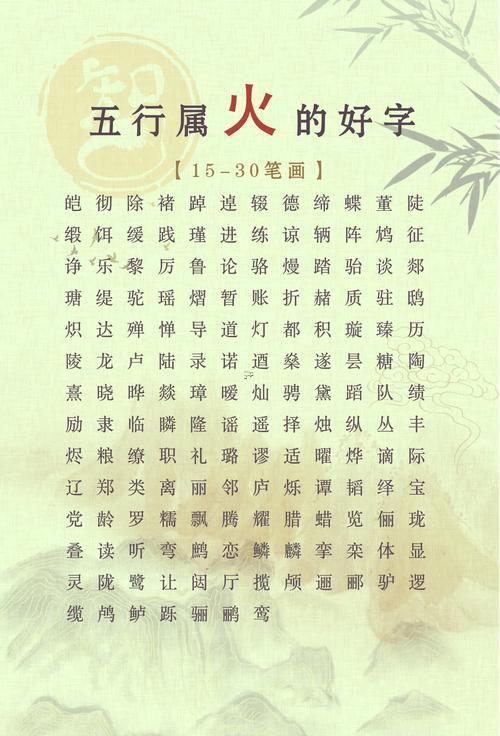 智
五行属火的好字
【15-30笔画】
皑 彻 除 褚 踔 逴 辍 德 缔 蝶 董 陡
缎 饵 缓 践 瑾 进 练 谅 辆 阵 鸩 征
诤 乐 黎 厉 鲁 论 骆 熳 踏 骀 谈 郯
瑭 缇 驼 瑶 熠 暂 账 折 赭 质 驻 鸱
炽 达 殚 惮 导 道 灯 都 积 璇 臻 历
陵 龙 卢 陆 录 诺 遒 燊 遂 昙 糖 陶
熹 晓 晔 燚 璋 暖 灿 骋 黛 蹈 队 绩
励 隶 临 瞵 隆 谣 遥 择 烛 纵 丛 丰
烬 粮 缭 职 礼 璐 谬 适 曜 烨 谪 际
辽 郑 类 离 丽 邻 庐 烁 谭 韬 绎 宝
党 龄 罗 糯 飘 腾 耀 腊 蜡 览 俪 珑
叠 读 听 弯 鹧 恋 鳞 麟 孪 栾 体 显
灵 陇 鹭 让 闼 厅 揽 颅 逦 郦 驴 逻
缆 鸬 鲈 跞 骊 鹂 鸾